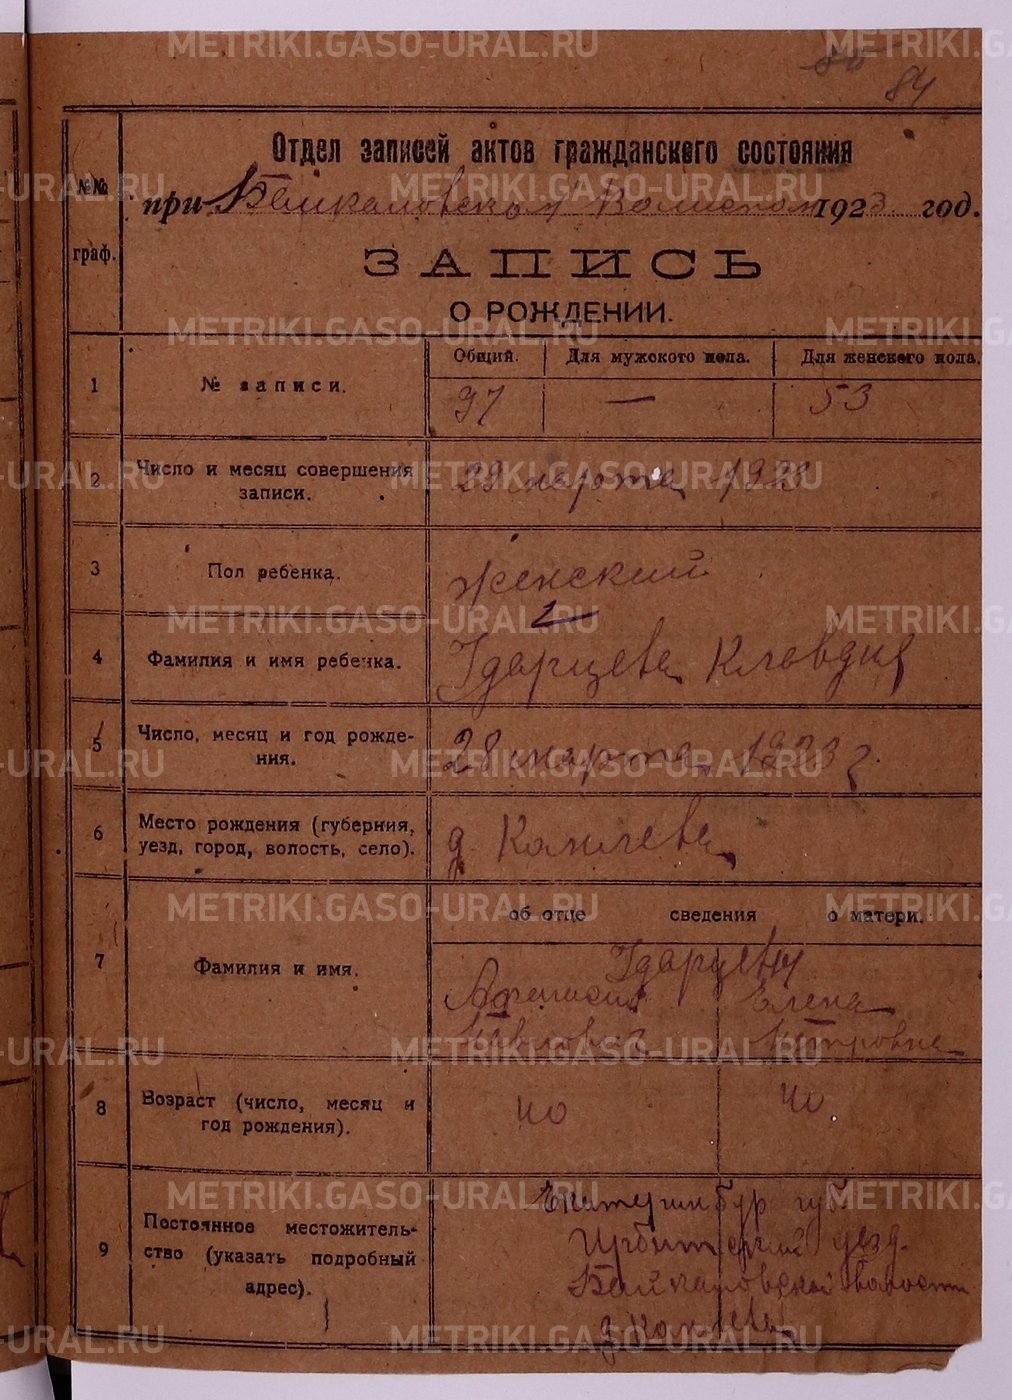 80
84
Отдел записей актов гражданского состояния
№№ граф.
при Байкаловском Волиспол 1923 год.
ЗАПИСЬ
О РОЖДЕНИИ.
1
№ записи.
Общий. Для мужского пола. Для женского пола.
97 — 53
2
Число и месяц совершения
записи.
29 марта 1923
3
Пол ребенка.
женский
4
Фамилия и имя ребенка.
Ударцева Клавдия
5
Число, месяц и год рожде-
ния.
28 марта 1923 г
6
Место рождения (губерния,
уезд, город, волость, село).
д. Калиева
7
Фамилия и имя.
об отце сведения о матери.
Ударцевы
Афанасий Елена
Павлович Петровна
8
Возраст (число, месяц и
год рождения).
40 40
9
Постоянное местожитель-
ство (указать подробный
адрес).
Екатеринбур губ.
Ирбитский уезд.
Байкаловской волости
д Калиева
METRIKI.GASO-URAL.RU